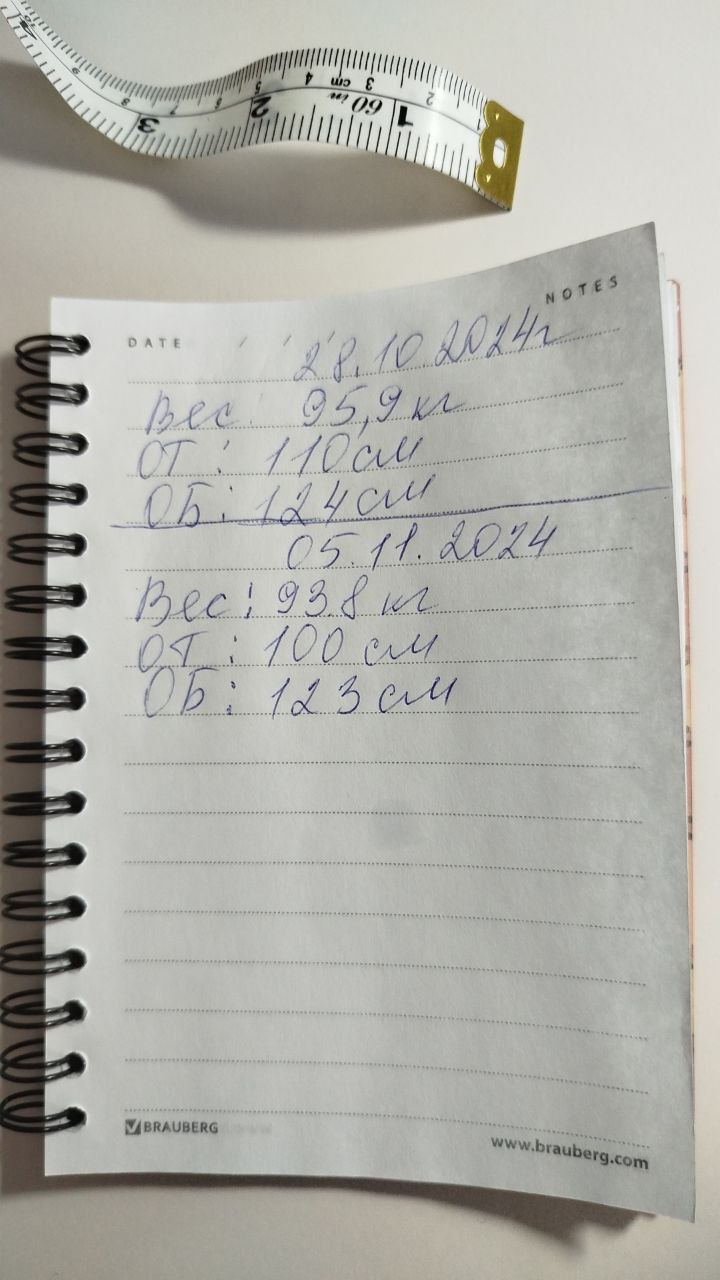 1 2 3 4 5 6 7 8 9
cm
1 60 in 2 3 4
DATE
NOTES
28.10.2024г
Вес: 95,9 кг
ОТ: 110 см
ОБ: 124 см
05.11.2024
Вес: 93.8 кг
ОТ: 100 см
ОБ: 123 см
BRAUBERG
www.brauberg.com